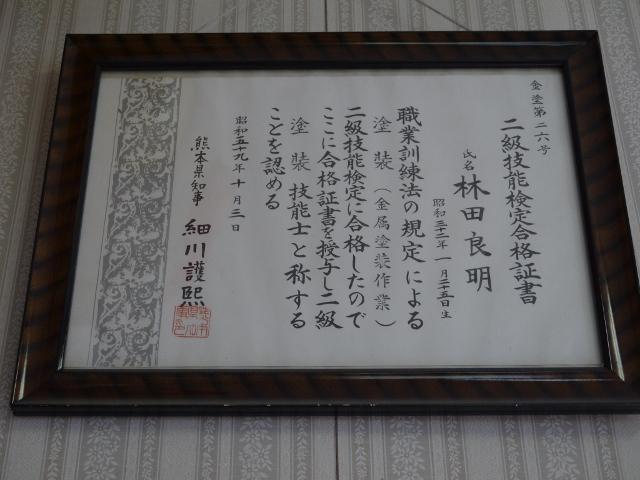 金塗第二六号
二級技能検定合格証書
氏名 林田良明
昭和三十二年一月二十五日生
職業訓練法の規定による
塗装（金属塗装作業）
二級技能検定に合格したので
ここに合格証書を授与し二級
塗装技能士と称する
ことを認める
昭和五十九年十月三日
熊本県知事 細川護熙